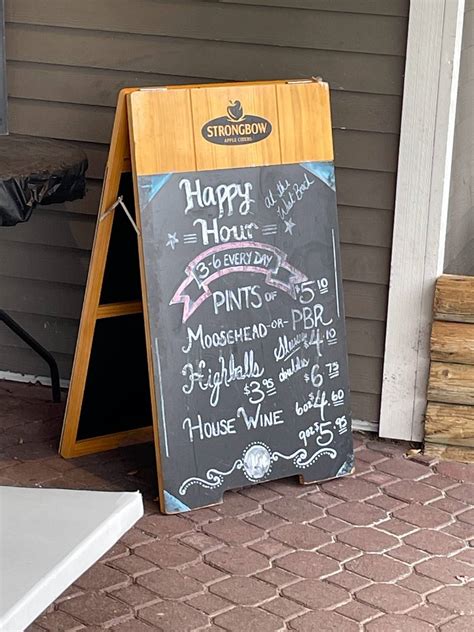 STRONGBOW
APPLE CIDERS
Happy Hour
at the
3-6 EVERY DAY
PINTS OF $5.10
MOOSEHEAD -OR- PBR
Highballs $3.95
$4.10
doubles $6.75
HOUSE WINE 6oz $4.95
9oz $5.95